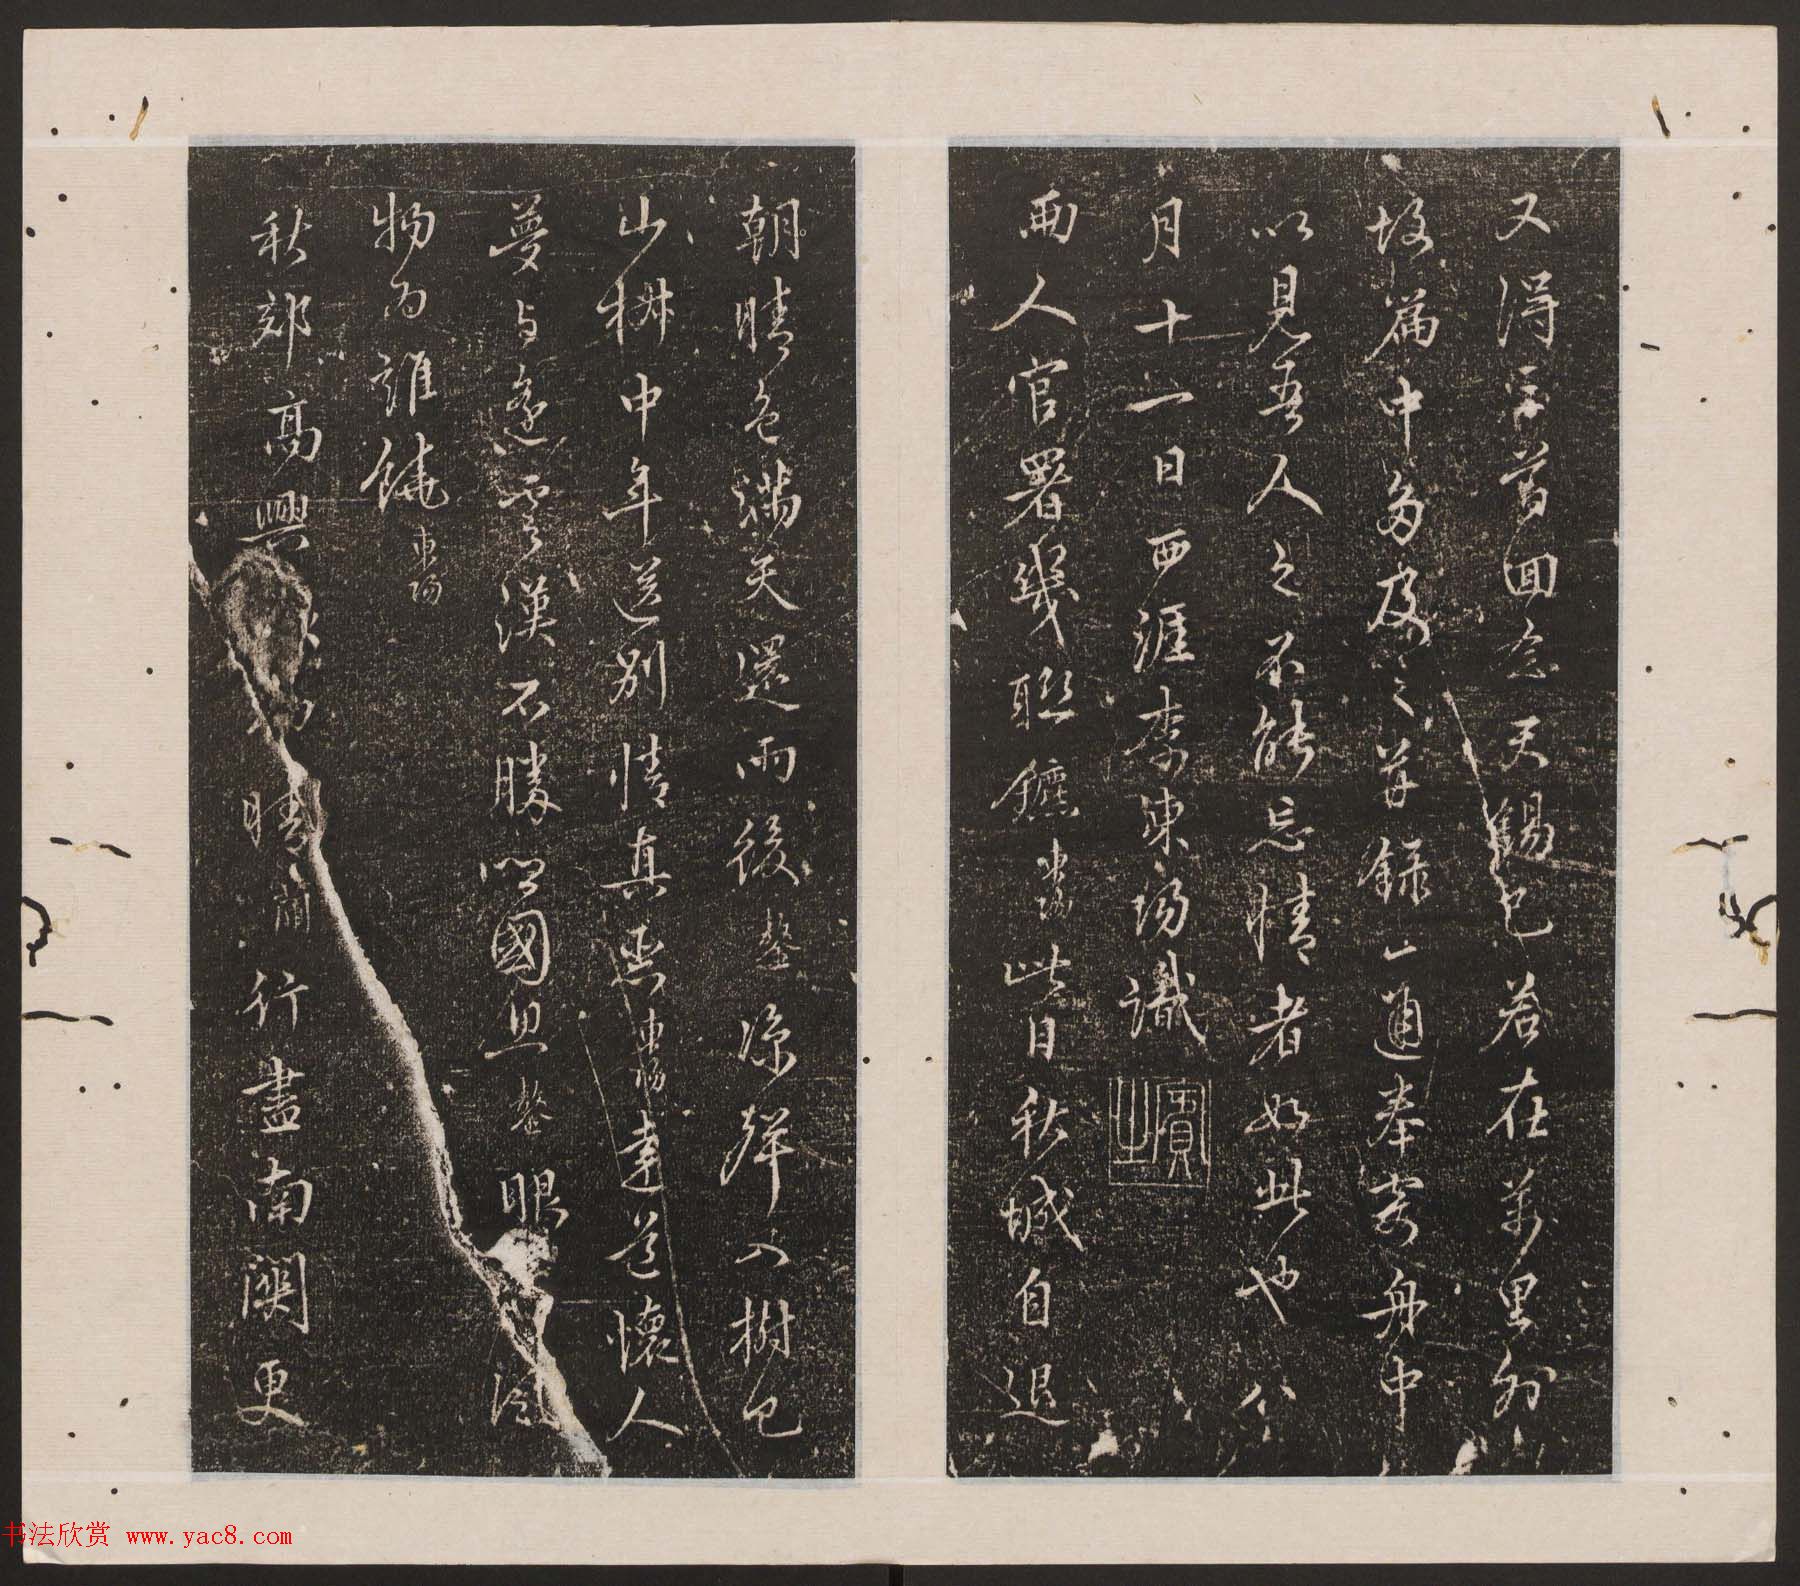 又得示旧回忽天錫已㳟在萬里外
故篇中多及之并錄一通奉寄舟中
以見吾人之不能忘情者如此也八
月十一日西涯李東陽識
賓之
兩人官署幾聯鑣東陽此日秋城自退
朝晴色滿天還雨後鏊涼聲入樹已
山椒中年送別情真惡東陽達道懷人
夢亦遙雲漢不勝望國思鏊眼風
物為誰饒東陽
秋郊高興晴蘭行盡南闕更
书法欣赏 www.yac8.com